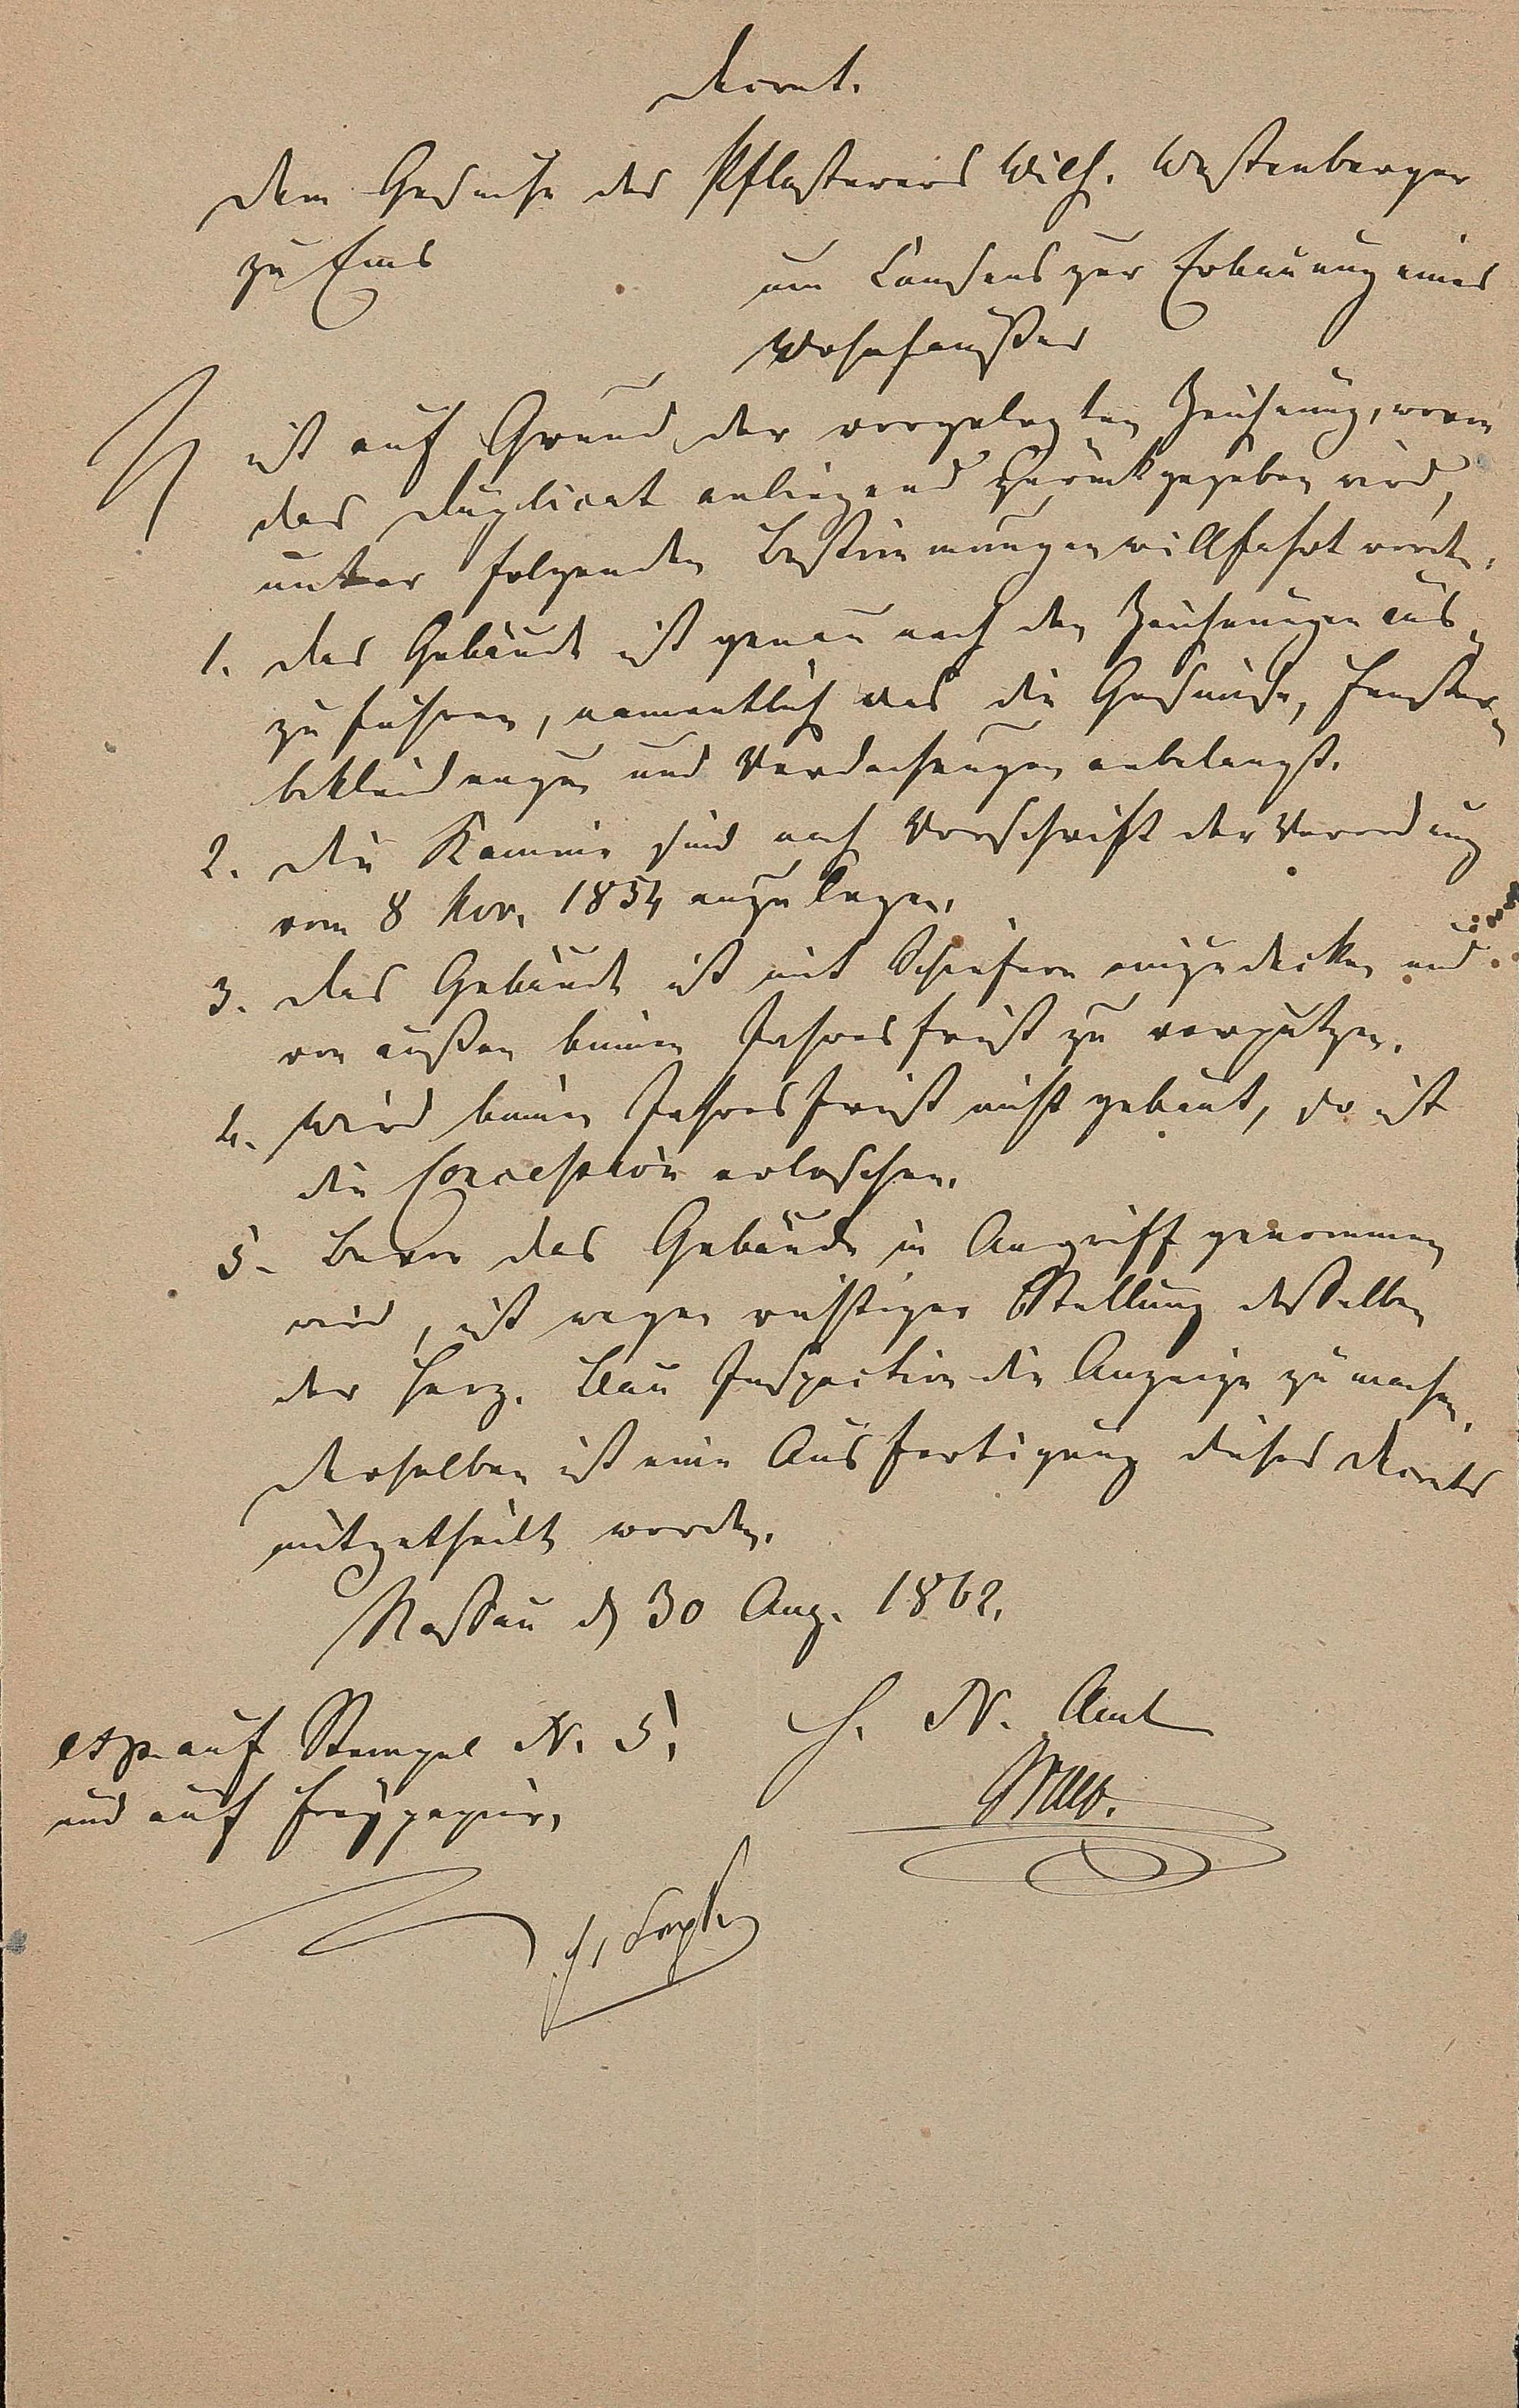 Decret.
Dem Gesuche des Pflasterers Wilh. Westenberger
zu Ems
um Consens zur Erbauung eines
Wohnhaußes
ist auf Grund der vorgelegten Zeichnung, wovon
das Duplicat anliegend zurückgegeben wird,
unter folgenden Bestimmungen willfahrt worden.
1. Das Gebäude ist genau nach den Zeichnungen aus-
zuführen, namentlich was die Gesimse, Fenster-
bekleidungen und Verdachungen anbelangt.
2. Die Kamine sind nach Vorschrift der Verordnung
vom 8 Nov. 1854 anzulegen.
3. Das Gebäude ist mit Schiefern einzudecken und
von außen binnen Jahresfrist zu verputzen.
4. Wird binnen Jahresfrist nicht gebaut, so ist
die Concession erloschen.
5. Bevor das Gebäude in Angriff genommen
wird, ist wegen richtiger Stellung desselben
der Herz. Bau Inspection die Anzeige zu machen.
Derselben ist eine Ausfertigung dieses Decrets
mitgetheilt worden.
Nassau d 30 Aug. 1862.
H. N. Amt
exp. auf Stempel N. 5.
und auf Freypapier,